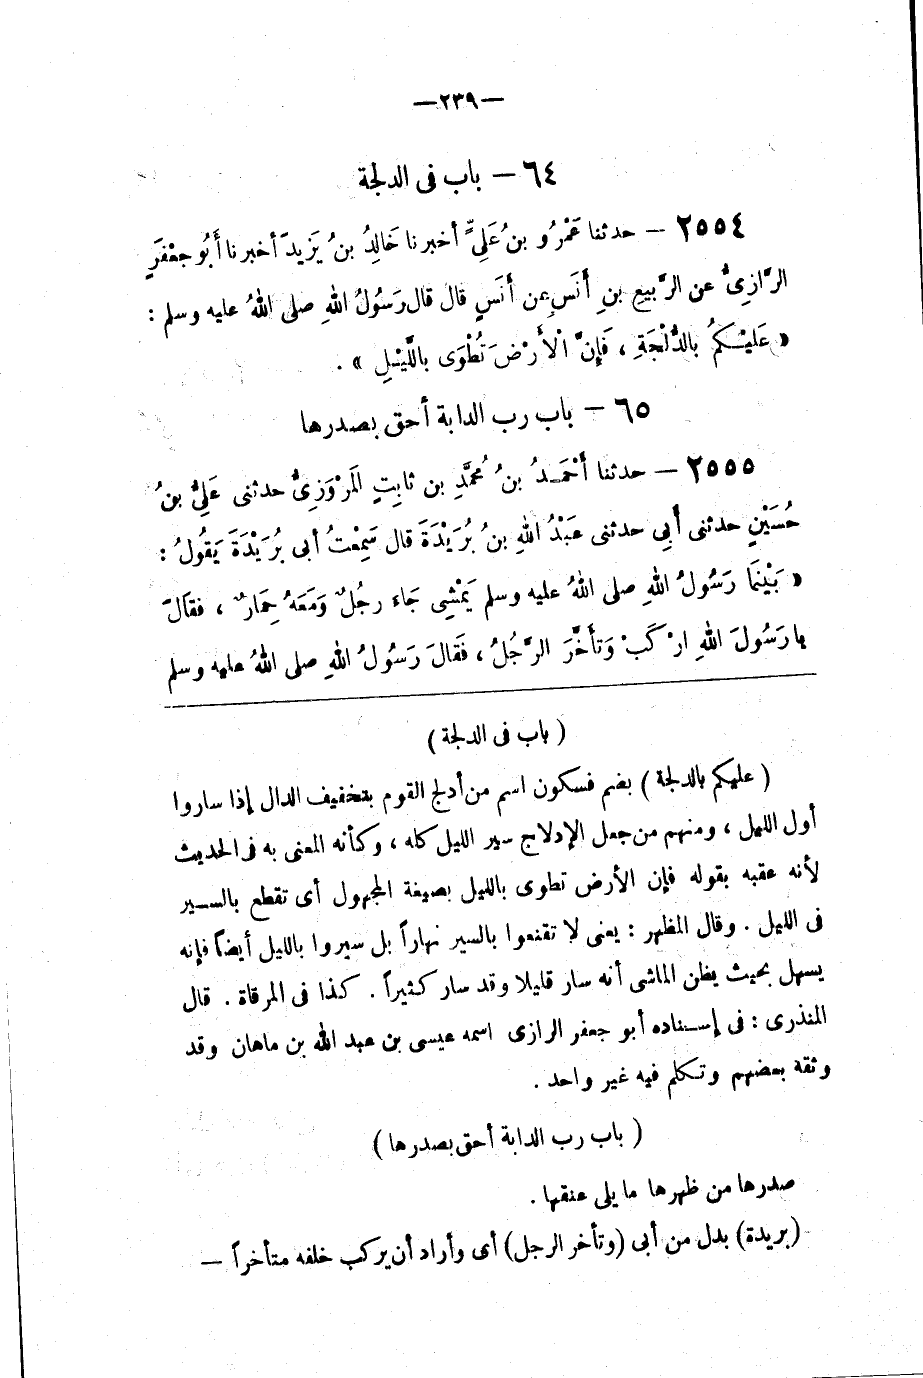 —٢٣٩—
٦٤ — باب فى الدلجة
٢٥٥٤ — حدثنا عَمْرُو بنُ عَلِىٍّ أخبرنا خَالِدُ بنُ يَزِيدَ أخبرنا أَبُو جعْفَرٍ
الرَّازِىُّ عن الرَّبِيعِ بنِ أَنَسٍ عن أَنَسٍ قال قال رَسُولُ اللهِ صلى اللهُ عليه وسلم :
« عَلَيْكُمْ بالدُّلْجَةِ ، فَإِنَّ الْأَرْضَ تُطْوَى باللَّيْلِ » .
٦٥ — باب رب الدابة أحق بصدرها
٢٥٥٥ — حدثنا أَحْمَدُ بنُ مُحمَّدِ بن ثابِتٍ المَرْوَزِىُّ حدثنى عَلِىُّ بنُ
حُسَيْنٍ حدثنى أَبِى حدثنى عَبْدُ اللهِ بنُ بُرَيْدَةَ قال سَمِعْتُ أبى بُرَيْدَةَ يَقُولُ :
« بَيْنَمَا رَسُولُ اللهِ صلى اللهُ عليه وسلم يَمْشِى جَاءَ رجُلٌ وَمَعَهُ حِمَارٌ ، فقالَ
يا رَسُولَ اللهِ ارْكَبْ وَتأَخَّرَ الرَّجُلُ ، فَقَالَ رَسُولُ اللهِ صلى اللهُ عليه وسلم
( باب فى الدلجة )
( عليكم بالدلجة ) بضم فسكون اسم من أدلج القوم بتخفيف الدال إذا ساروا
أول الليل ، ومنهم من جعل الإدلاج سير الليل كله ، وكأنه المعنى به فى الحديث
لأنه عقبه بقوله فإن الأرض تطوى بالليل بصيغة المجهول أى تقطع بالسير
فى الليل . وقال المظهر : يعنى لا تقنعوا بالسير نهاراً بل سيروا بالليل أيضاً فإنه
يسهل بحيث يظن الماشى أنه سار قليلا وقد سار كثيراً . كذا فى المرقاة . قال
المنذرى : فى إسناده أبو جعفر الرازى اسمه عيسى بن عبد الله بن ماهان وقد
وثقه بعضهم وتكلم فيه غير واحد .
( باب رب الدابة أحق بصدرها )
صدرها من ظهرها ما يلى عنقها .
(بريدة) بدل من أبى (وتأخر الرجل) أى وأراد أن يركب خلفه متأخراً —